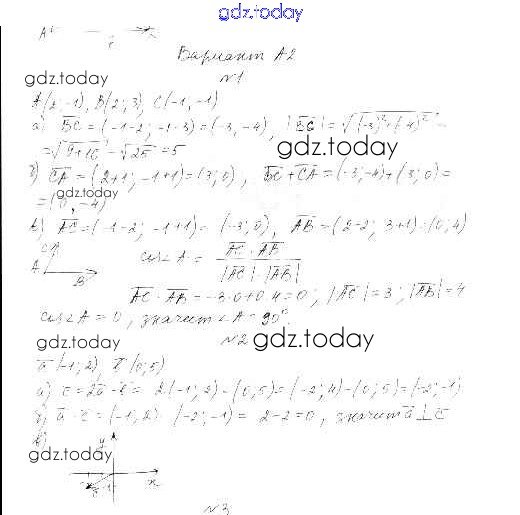 gdz.today
Вариант А2
gdz.today
№1
A(2;-1), B(2;3), C(-1,-1)
а) BC = (-1-2; -1-3) = (-3, -4), |BC| = √((-3)²+(-4)²) =
= √(9+16) = √25 = 5
gdz.today
б) CA = (2+1; -1+1) = (3; 0), BC + CA = (-3;-4)+(3;0) =
gdz.today
= (0, -4)
в) AC = (-1-2; -1+1) = (-3; 0), AB = (2-2; 3+1) = (0; 4)
C
A B
cos∠A = AC · AB / |AC| · |AB|
AC · AB = -3·0+0·4=0; |AC| = 3, |AB| = 4
cos∠A = 0, значит ∠A = 90°.
gdz.today
№2
gdz.today
a(-1; 2), b(0; 5)
а) c = 2a - b = 2(-1; 2) - (0; 5) = (-2; 4) - (0; 5) = (-2; -1)
б) a · c = (-1; 2) · (-2; -1) = 2-2=0, значит a ⊥ c
в)
y
gdz.today
x
№3